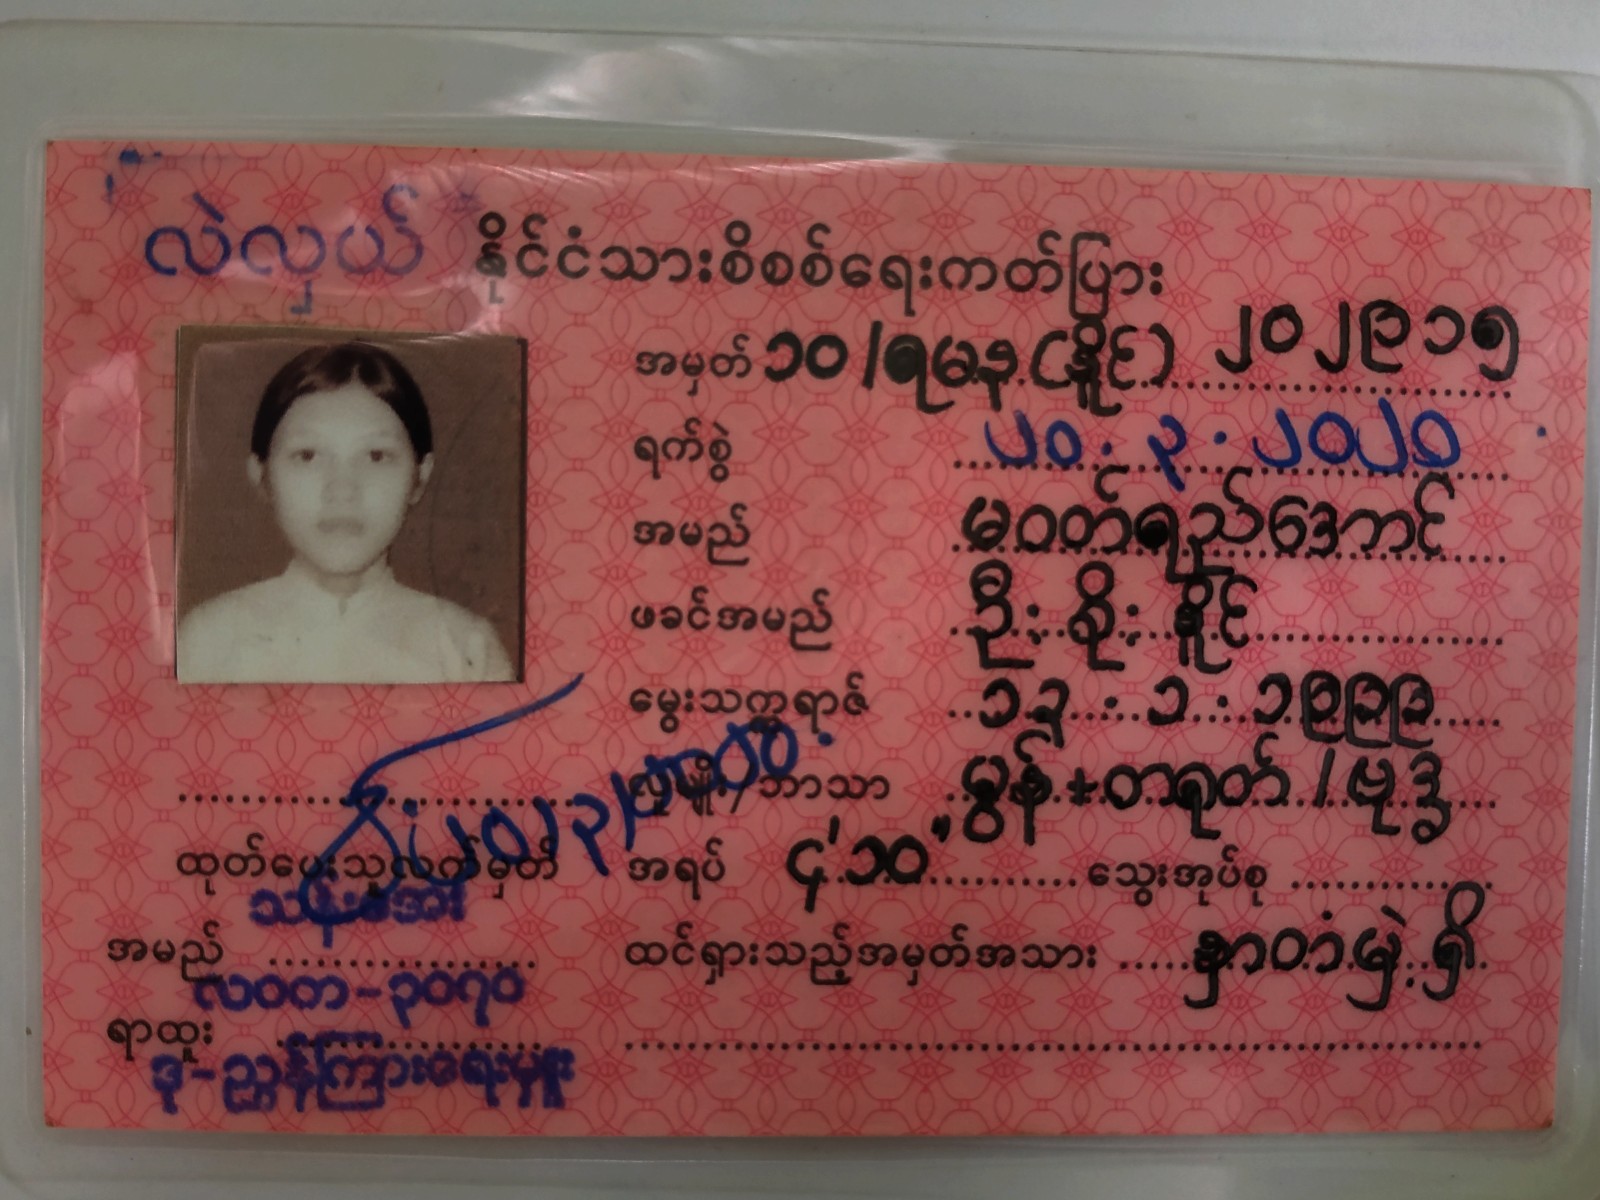 လဲလှယ် နိုင်ငံသားစိစစ်ရေးကတ်ပြား
အမှတ် ၁၀/ရမန(နိုင်) ၂၀၂၉၁၅
ရက်စွဲ ၂၀.၃.၂၀၂၀
အမည် မဝတ်ရည်ဒေကင်
ဖခင်အမည် ဦးစိုးနိုင်
မွေးသက္ကရာဇ် ၁၃.၁.၁၉၉၉
လူမျိုး/ဘာသာ မွန်+တရုတ်/ဗုဒ္ဓ
အရပ် ၄'၁၀" သွေးအုပ်စု
ထင်ရှားသည့်အမှတ်အသား နှာဝတံမှဲ့ရှိ
ထုတ်ပေးသူလက်မှတ်
အမည်
လဝတ-၃၀၇၀
ရာထူး
ဒု-ညွှန်ကြားရေးမှူး